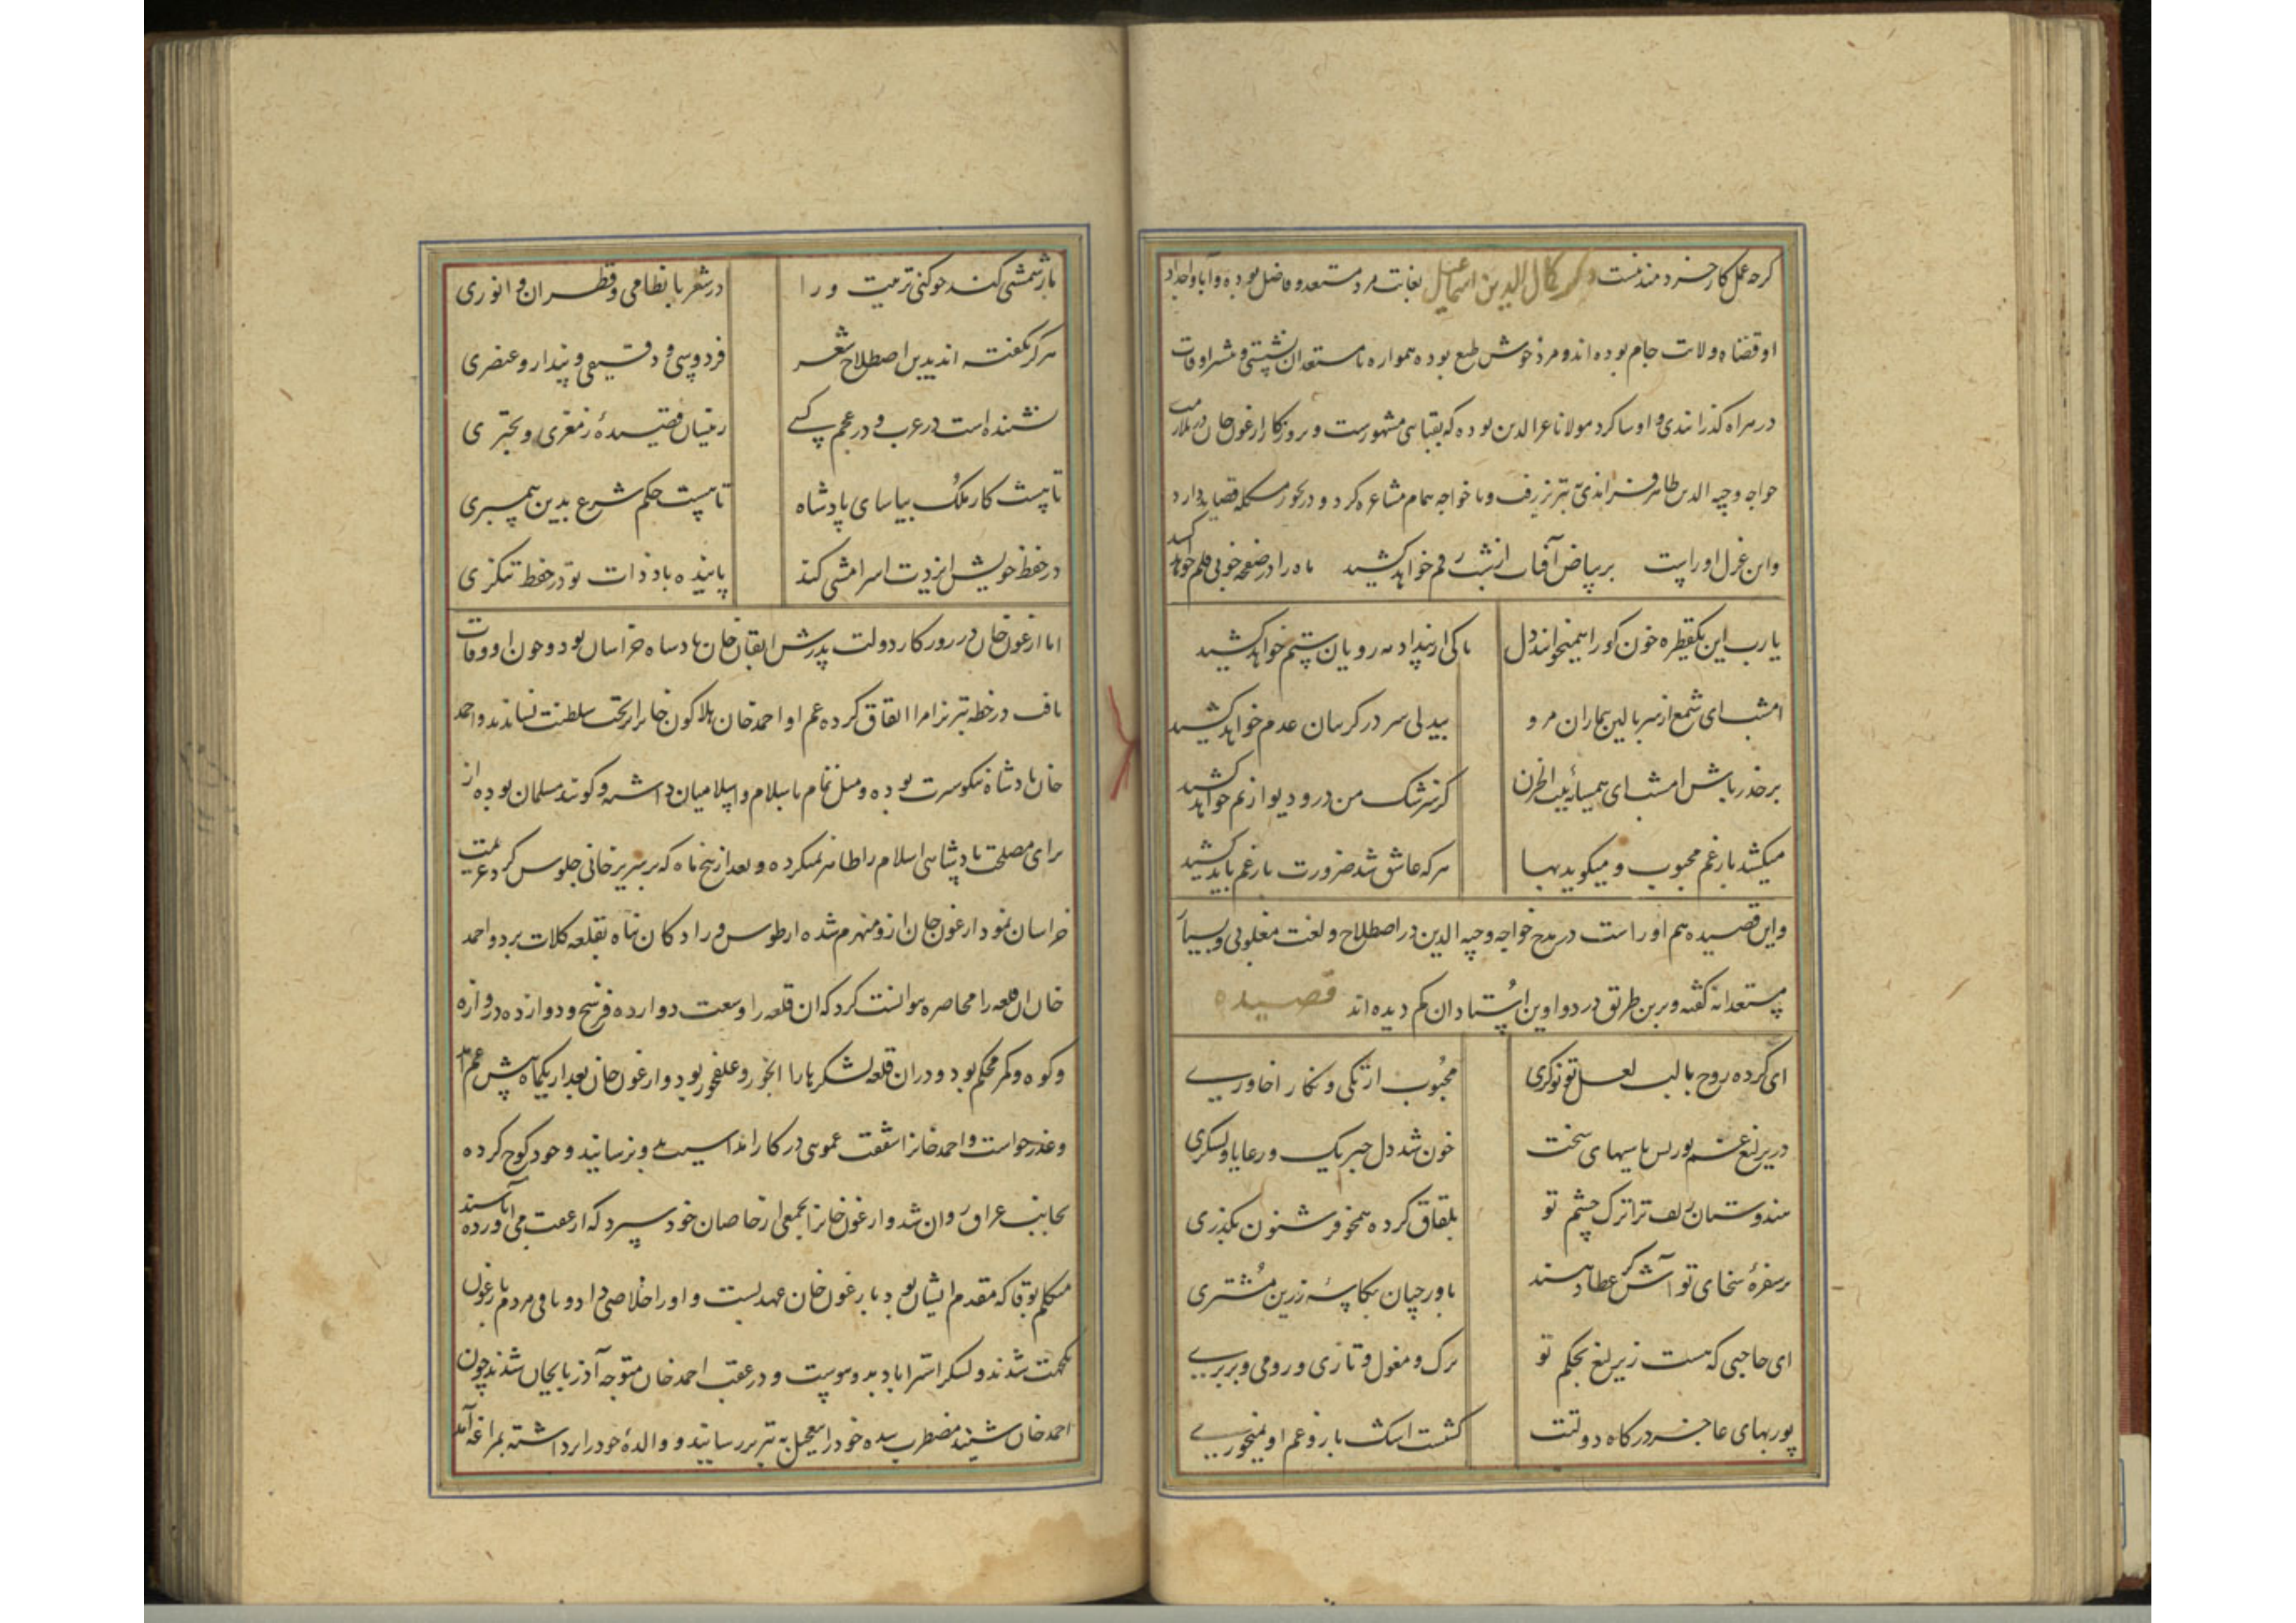 کرچه عمل کار خردمند نیست ذکر کمال الدین اسماعیل بغایت مرد مستعد و فاضل بوده و آبا و اجداد
او قضاه ولات جام بوده اند و مرد خوش طبع بوده همواره با مستعدان نشستی و بیشتر اوقات
در هراه کذرانیدی و او شاکرد مولانا بوده که مشهورست و بروزکار ارغون خان در ملازمت
خواجه وجیه الدین طاهر به تبریز رفت و با خواجه همام مشاعره کرد و در بحور مشکله قصاید دارد
واین غزل اوراست بر بیاض آفتاب از شب رقم خواهد کشید ماه را در صفحه خوبی قلم خواهد کشید
یا رب این یکقطره خون کو را همیخوانند دل تا کی از بیداد مه رویان ستم خواهد کشید
امشب ای شمع از سر بالین بیماران مرو بیدلی سر در کریبان عدم خواهد کشید
برحذر باش امشب ای همسایه بیت الحزن کز سرشک من در و دیوار نم خواهد کشید
میکشد بار غم محبوب و میکوید بها هرکه عاشق شد ضرورت بار غم باید کشید
واین قصیده هم اوراست در مدح خواجه وجیه الدین در اصطلاح و لغت مغولی و بسیار
مستعدانه کفته و برین طریق در دواوین استادان کم دیده اند قصیده
ای کرده روح با لب لعل تو نوکری محبوب و نکار
خون شد دل و رعایا و لشکری
هندوستان زلف ترا ترک چشم تو کرده همچو
بر سفره سخای تو آش عطا دهند باورچیان بکاسه زرین مشتری
ای حاجبی که هست بحکم تو ترک و مغول و تازی و رومی و بربری
پوربهای عاجز درکاه دولتت
کند چو کنی تربیت ورا در شعر با نظامی و قطران و انوری
هرکز نکفته اند بدین اصطلاح شعر فردوسی و دقیقی و پندار و عنصری
نشنیده است در عرب و در عجم کسی زینسان قصیده ز معزی و بحتری
تا هست کار ملک بیاسای پادشاه تا هست حکم شرع بدین پیمبری
در حفظ خویش ایزدت کند پاینده باد ذات تو در حفظ تنکری
اما ارغون خان در روزکار دولت پدرش ابقا خان پادشاه خراسان بود و چون او وفات
یافت در خطه تبریز امرا اتفاق کرده عم او احمد خان هلاکو خانرا بر تخت سلطنت نشاندند و احمد
خان پادشاه نیکو سیرت بوده و میل تمام باسلام و اسلامیان داشته و کویند مسلمان بوده از
برای مصلحت پادشاهی اسلام را ظاهر نمیکرده و بعد از پنج ماه که بر سریر خانی جلوس کرد عزیمت
خراسان نمود ارغون خان ازو منهزم شده از طوس و رادکان پناه بقلعه کلات برد و احمد
خان آن قلعه را محاصره نتوانست کرد که آن قلعه را وسعت دوازده فرسخ و دوازده دروازه
و کوه و کمر محکم بود و در آن قلعه لشکریانرا و علفخور بود و ارغون خان بعد از یکماه پیش عم آمد
و عذر خواست و احمد خانرا شفقت عموی در کار و خود کوچ کرده
بجانب عراق روان شد و ارغون خانرا بجمعی از خاصان خود سپرد که از عقب می آورده باشند
بوقا که مقدم ایشان بود با ارغون خان عهد بست و او را خلاصی داد و باقی مردم با ارغون
یکجهت شدند و لشکر استراباد بدو پیوست و در عقب احمد خان متوجه آذربایجان شدند چون
احمد خان شنید مضطرب شده خود را بتعجیل به تبریز رسانید و والده خود را برداشته بمراغه آمد